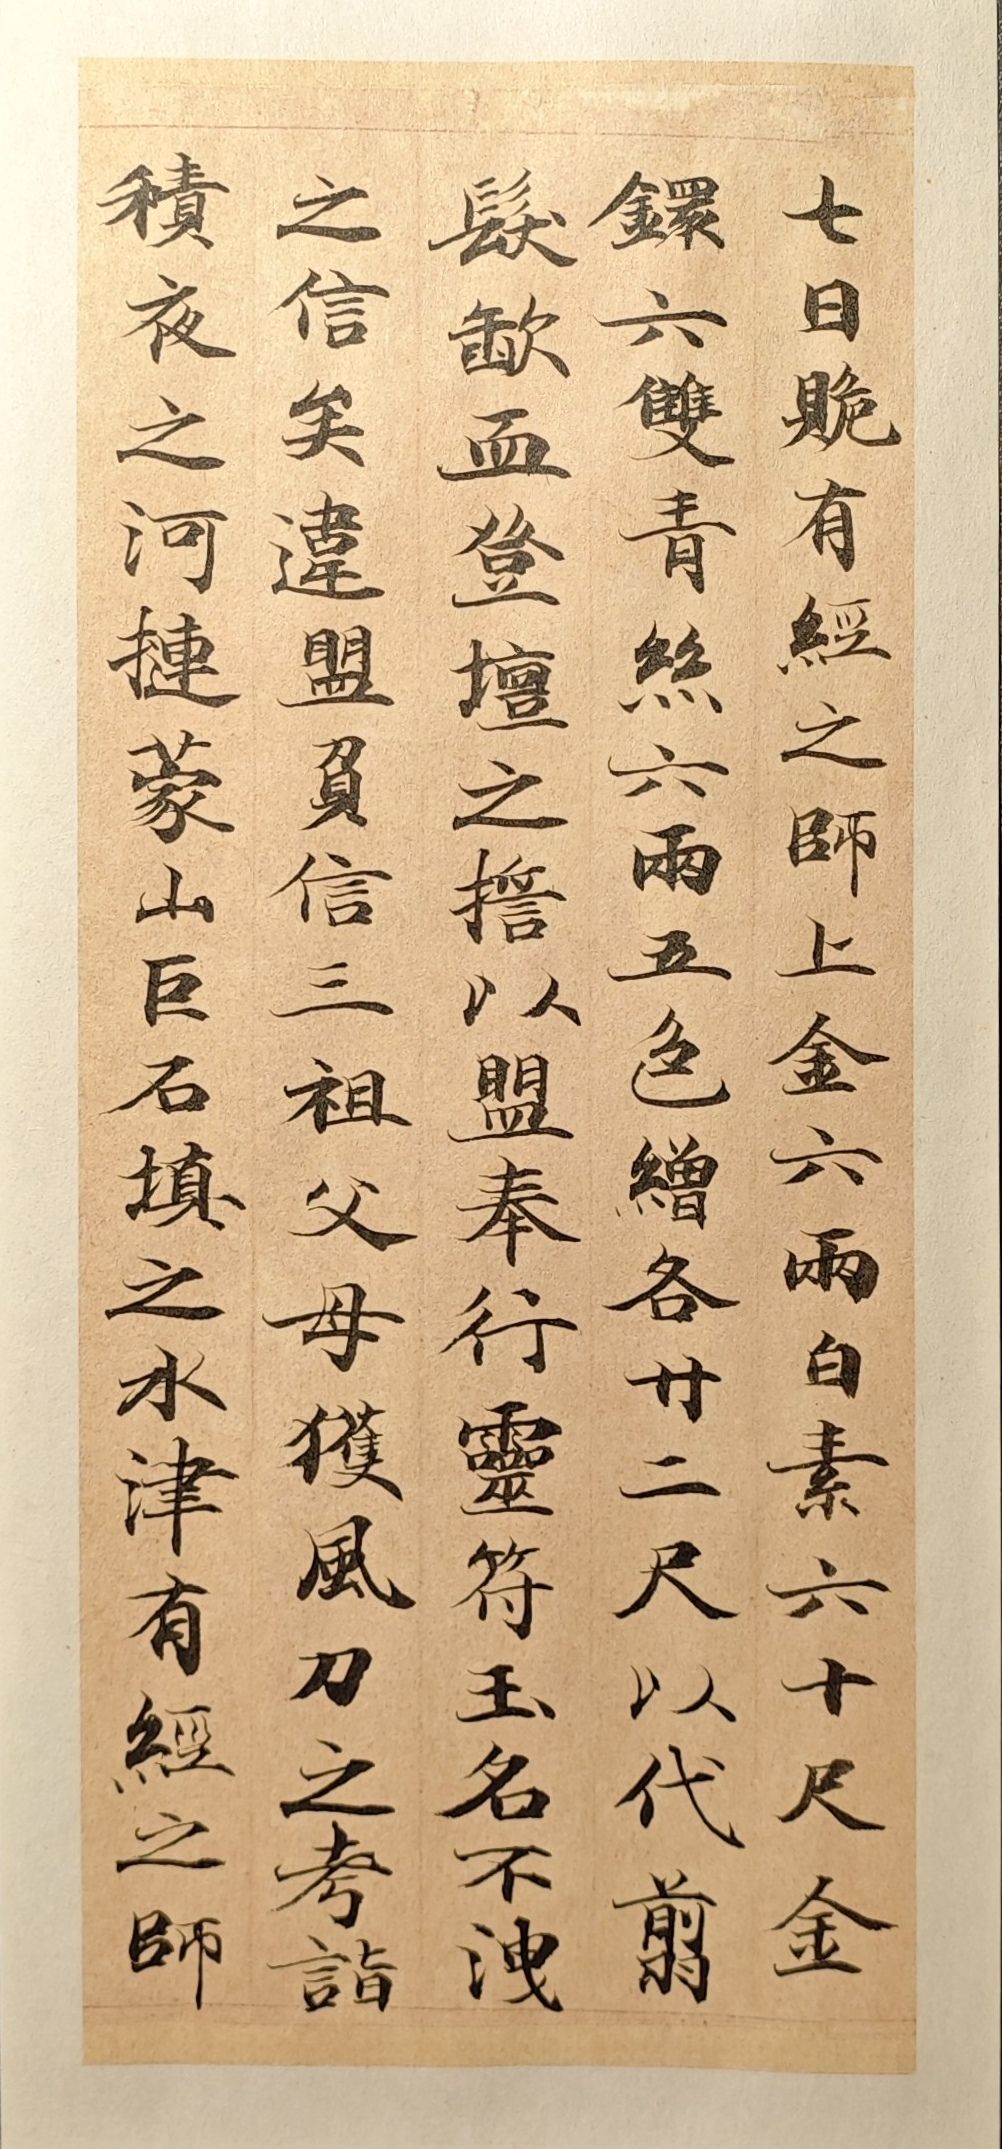 七日賧有經之師上金六兩白素六十尺金
鐶六雙青絲六兩五色繒各廿二尺以代翦
髮歃血登壇之誓以盟奉行靈符玉名不洩
之信矣違盟負信三祖父母獲風刀之考詣
積夜之河摙蒙山巨石填之水津有經之師